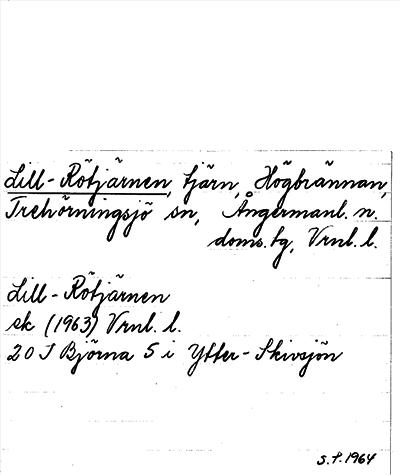 Lill-Rötjärnen, tjärn, Högbrännan,
Trehörningsjö sn, Ångermanl. n.
doms.tg, Vrnl. l.
Lill-Rötjärnen
ek (1963) Vrnl. l.
20 J Björna 5 i Ytter-Skivsjön
S.F. 1964